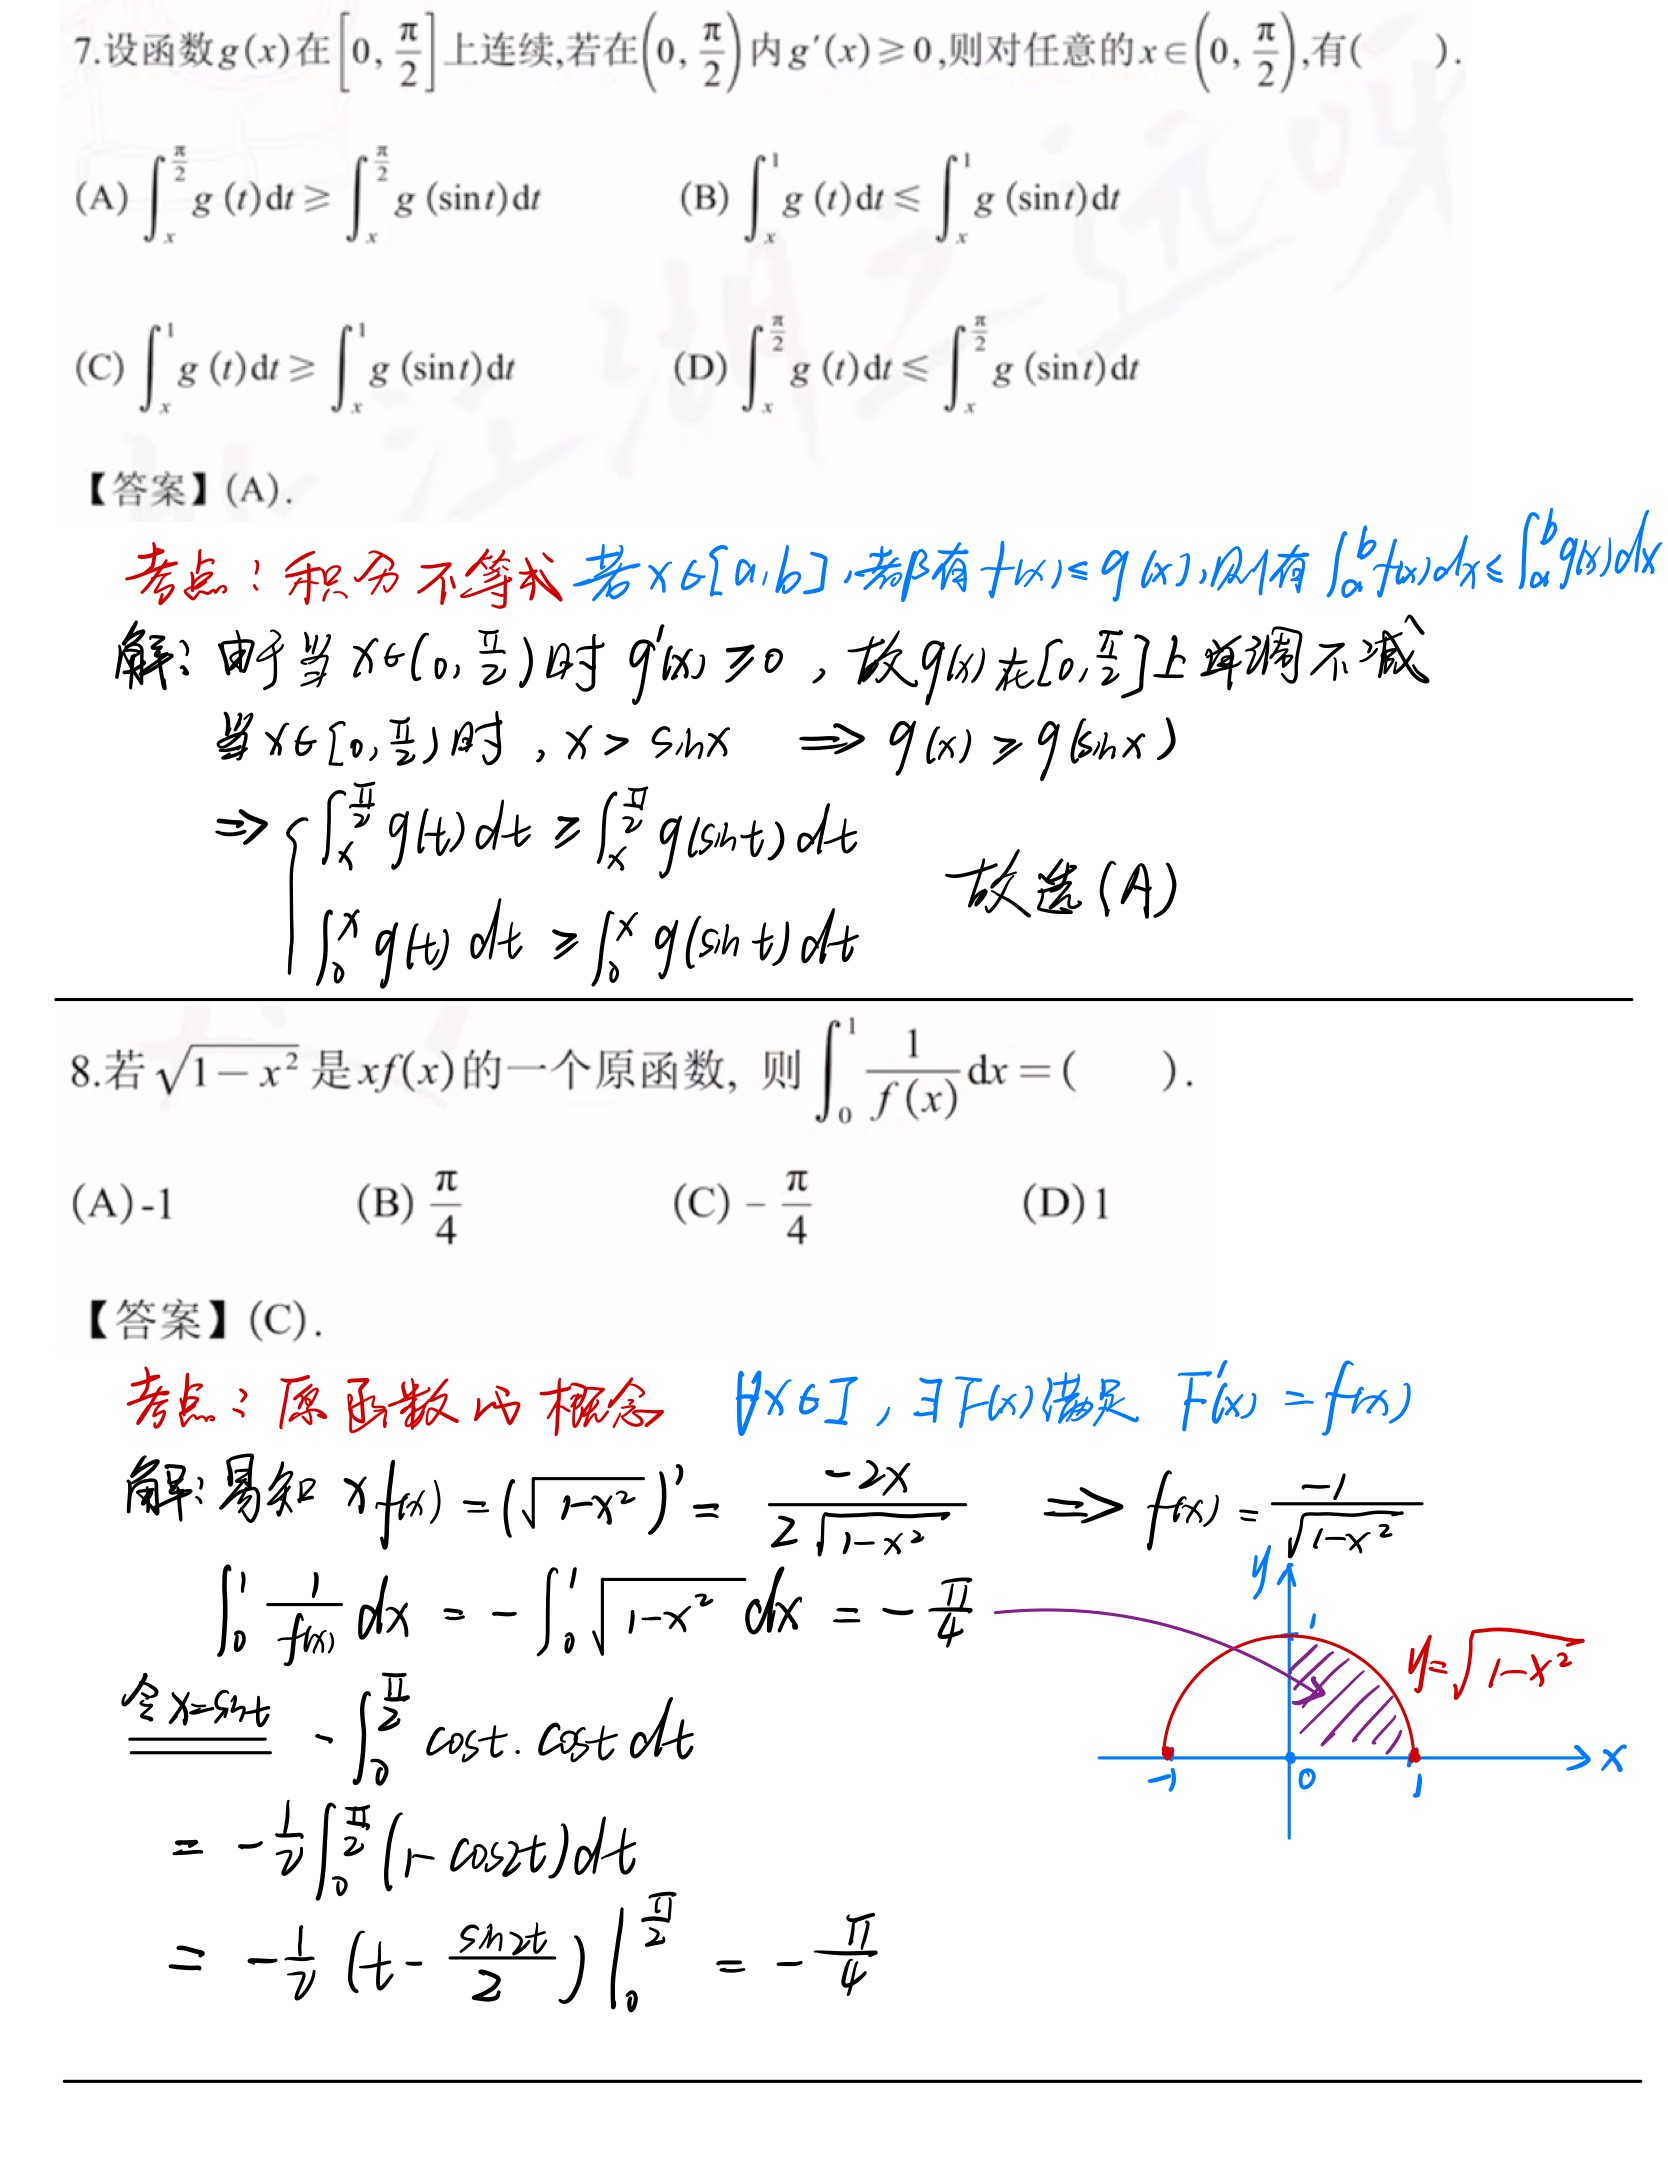 7.设函数g(x)在[0, π/2]上连续,若在(0, π/2)内g′(x)≥0,则对任意的x∈(0, π/2),有(    ).
(A) ∫_x^{π/2} g(t)dt ≥ ∫_x^{π/2} g(sint)dt    (B) ∫_x^1 g(t)dt ≤ ∫_x^1 g(sint)dt
(C) ∫_x^1 g(t)dt ≥ ∫_x^1 g(sint)dt    (D) ∫_x^{π/2} g(t)dt ≤ ∫_x^{π/2} g(sint)dt
【答案】(A).
考点：积分不等式 若x∈[a,b],都有f(x)≤g(x),则有∫_a^b f(x)dx≤∫_a^b g(x)dx
解：由于当x∈(0, π/2)时 g′(x)≥0，故g(x)在[0, π/2]上单调不减
当x∈[0, π/2)时，x > sinx ⇒ g(x) ≥ g(sinx)
⇒ { ∫_x^{π/2} g(t)dt ≥ ∫_x^{π/2} g(sint)dt
∫_0^x g(t)dt ≥ ∫_0^x g(sint)dt
故选(A)
8.若√(1−x²)是xf(x)的一个原函数, 则∫_0^1 1/f(x) dx = (    ).
(A)-1    (B) π/4    (C) −π/4    (D)1
【答案】(C).
考点：原函数的概念 ∀x∈I，∃F(x)满足 F′(x) = f(x)
解：易知 xf(x) = (√(1-x²))′ = -2x/(2√(1-x²)) ⇒ f(x) = -1/√(1-x²)
∫_0^1 1/f(x) dx = -∫_0^1 √(1-x²) dx = -π/4
令x=sint - ∫_0^{π/2} cost·cost dt
= -1/2 ∫_0^{π/2} (1-cos2t)dt
= -1/2 (t - sin2t/2) |_0^{π/2} = -π/4
y
1
y=√(1-x²)
-1 0 1 x